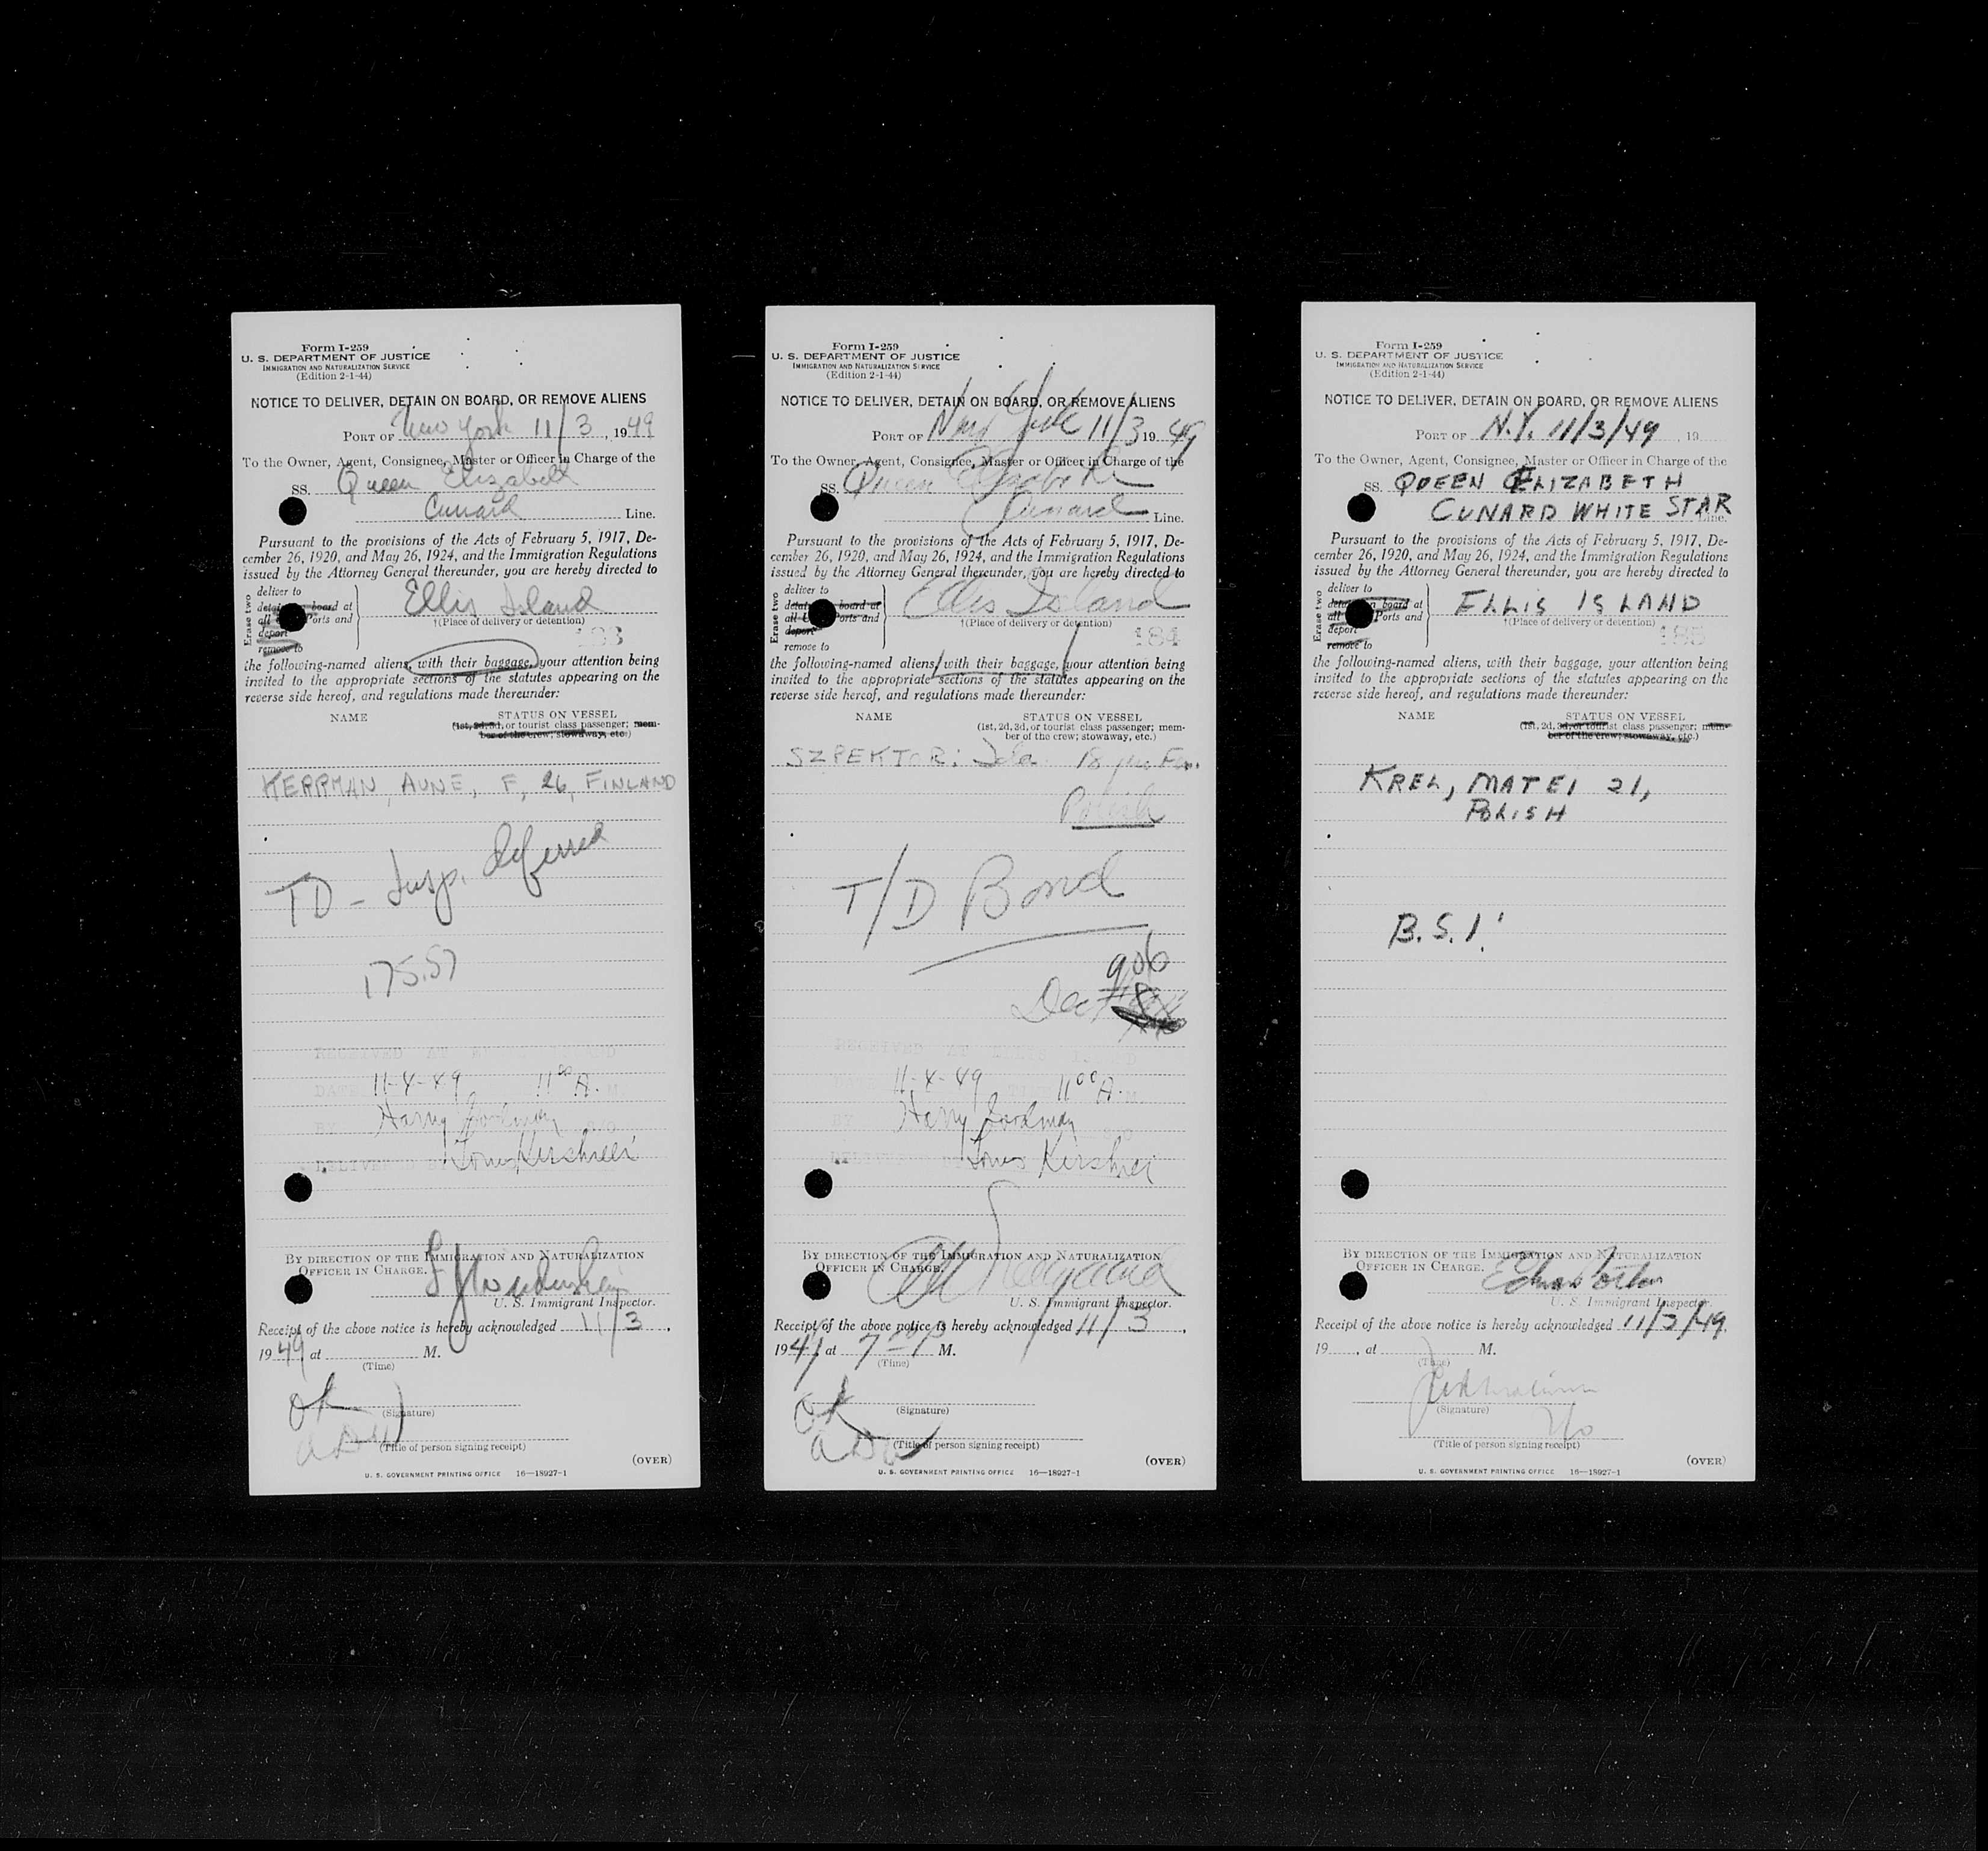 Form I-259
U. S. DEPARTMENT OF JUSTICE
IMMIGRATION AND NATURALIZATION SERVICE
(Edition 2-1-44)
NOTICE TO DELIVER, DETAIN ON BOARD, OR REMOVE ALIENS
PORT OF New York 11/3, 1949
To the Owner, Agent, Consignee, Master or Officer in Charge of the
SS. Queen Elizabeth
Cunard Line.
Pursuant to the provisions of the Acts of February 5, 1917, De-
cember 26, 1920, and May 26, 1924, and the Immigration Regulations
issued by the Attorney General thereunder, you are hereby directed to
Erase two
deliver to
board at
Ports and
deport
remove to
Ellis Island
†(Place of delivery or detention)
183
the following-named aliens, with their baggage, your attention being
invited to the appropriate sections of the statutes appearing on the
reverse side hereof, and regulations made thereunder:
NAME STATUS ON VESSEL
(1st, 2d, 3d, or tourist class passenger; mem-
ber of the crew; stowaway, etc.)
KERPMAN, AUNE, F, 26, FINLAND
TD - Insp. deferred
175.57
RECEIVED AT ELLIS ISLAND
DATE 11-4-49 11 00 A. M.
BY Harry Goodman
DELIVERED Louis Kirshner
BY DIRECTION OF THE IMMIGRATION AND NATURALIZATION
OFFICER IN CHARGE.
U. S. Immigrant Inspector.
Receipt of the above notice is hereby acknowledged 11/3,
1949 at M.
(Time)
OK
(Signature)
(Title of person signing receipt)
(OVER)
U. S. GOVERNMENT PRINTING OFFICE 16—18927-1
Form I-259
U. S. DEPARTMENT OF JUSTICE
IMMIGRATION AND NATURALIZATION SERVICE
(Edition 2-1-44)
NOTICE TO DELIVER, DETAIN ON BOARD, OR REMOVE ALIENS
PORT OF New York 11/3 1949
To the Owner, Agent, Consignee, Master or Officer in Charge of the
SS. Queen Elizabeth
Cunard Line.
Pursuant to the provisions of the Acts of February 5, 1917, De-
cember 26, 1920, and May 26, 1924, and the Immigration Regulations
issued by the Attorney General thereunder, you are hereby directed to
Erase two
deliver to
board at
Ports and
deport
remove to
Ellis Island
†(Place of delivery or detention)
184
the following-named aliens, with their baggage, your attention being
invited to the appropriate sections of the statutes appearing on the
reverse side hereof, and regulations made thereunder:
NAME STATUS ON VESSEL
(1st, 2d, 3d, or tourist class passenger; mem-
ber of the crew; stowaway, etc.)
SZPEKTOR: Ida 18 yrs Fem.
Polish
T/D Bond
906
RECEIVED AT ELLIS ISLAND
11-4-49 TIME 11 00 A. M.
BY Harry Goodman
Louis Kirshner
BY DIRECTION OF THE IMMIGRATION AND NATURALIZATION
OFFICER IN CHARGE.
U. S. Immigrant Inspector.
Receipt of the above notice is hereby acknowledged 11/3,
1949 at M.
(Time)
OK
(Signature)
(Title of person signing receipt)
(OVER)
U. S. GOVERNMENT PRINTING OFFICE 16—18927-1
Form I-259
U. S. DEPARTMENT OF JUSTICE
IMMIGRATION AND NATURALIZATION SERVICE
(Edition 2-1-44)
NOTICE TO DELIVER, DETAIN ON BOARD, OR REMOVE ALIENS
PORT OF N.Y. 11/3/49, 19
To the Owner, Agent, Consignee, Master or Officer in Charge of the
SS. QUEEN ELIZABETH
CUNARD WHITE STAR Line.
Pursuant to the provisions of the Acts of February 5, 1917, De-
cember 26, 1920, and May 26, 1924, and the Immigration Regulations
issued by the Attorney General thereunder, you are hereby directed to
Erase two
deliver to
board at
Ports and
deport
remove to
ELLIS ISLAND
†(Place of delivery or detention)
185
the following-named aliens, with their baggage, your attention being
invited to the appropriate sections of the statutes appearing on the
reverse side hereof, and regulations made thereunder:
NAME STATUS ON VESSEL
(1st, 2d, 3d, or tourist class passenger; mem-
ber of the crew, stowaway, etc.)
KREL, MATEI 21,
POLISH
B.S.I.
BY DIRECTION OF THE IMMIGRATION AND NATURALIZATION
OFFICER IN CHARGE.
U. S. Immigrant Inspector.
Receipt of the above notice is hereby acknowledged 11/3/49
19, at M.
(Time)
(Signature)
(Title of person signing receipt)
(OVER)
U. S. GOVERNMENT PRINTING OFFICE 16—18927-1